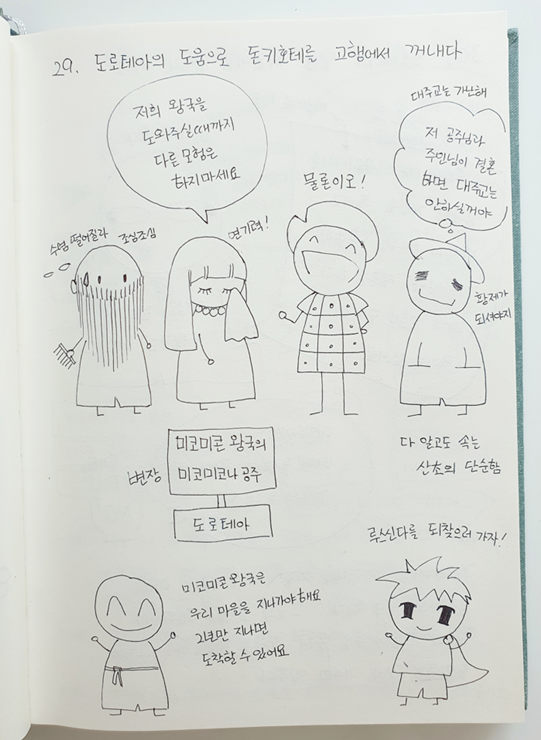 29. 도로테아의 도움으로 돈키호테를 고행에서 꺼내다
저희 왕국을
도와주실때까지
다른 모험은
하지마세요
수염 떨어질라 조심조심
연기력!
물론이오!
대주교는 가난해
저 공주님과
주인님이 결혼
하면 대주교는
안하실꺼야
황제가
되셔야지
변장
미코미콘 왕국의
미코미코나 공주
도로테아
다 알고도 속는
산초의 단순함
미코미콘 왕국은
우리 마을을 지나가야해요
2년만 지나면
도착할 수 있어요
루스신다를 되찾으러 가자!